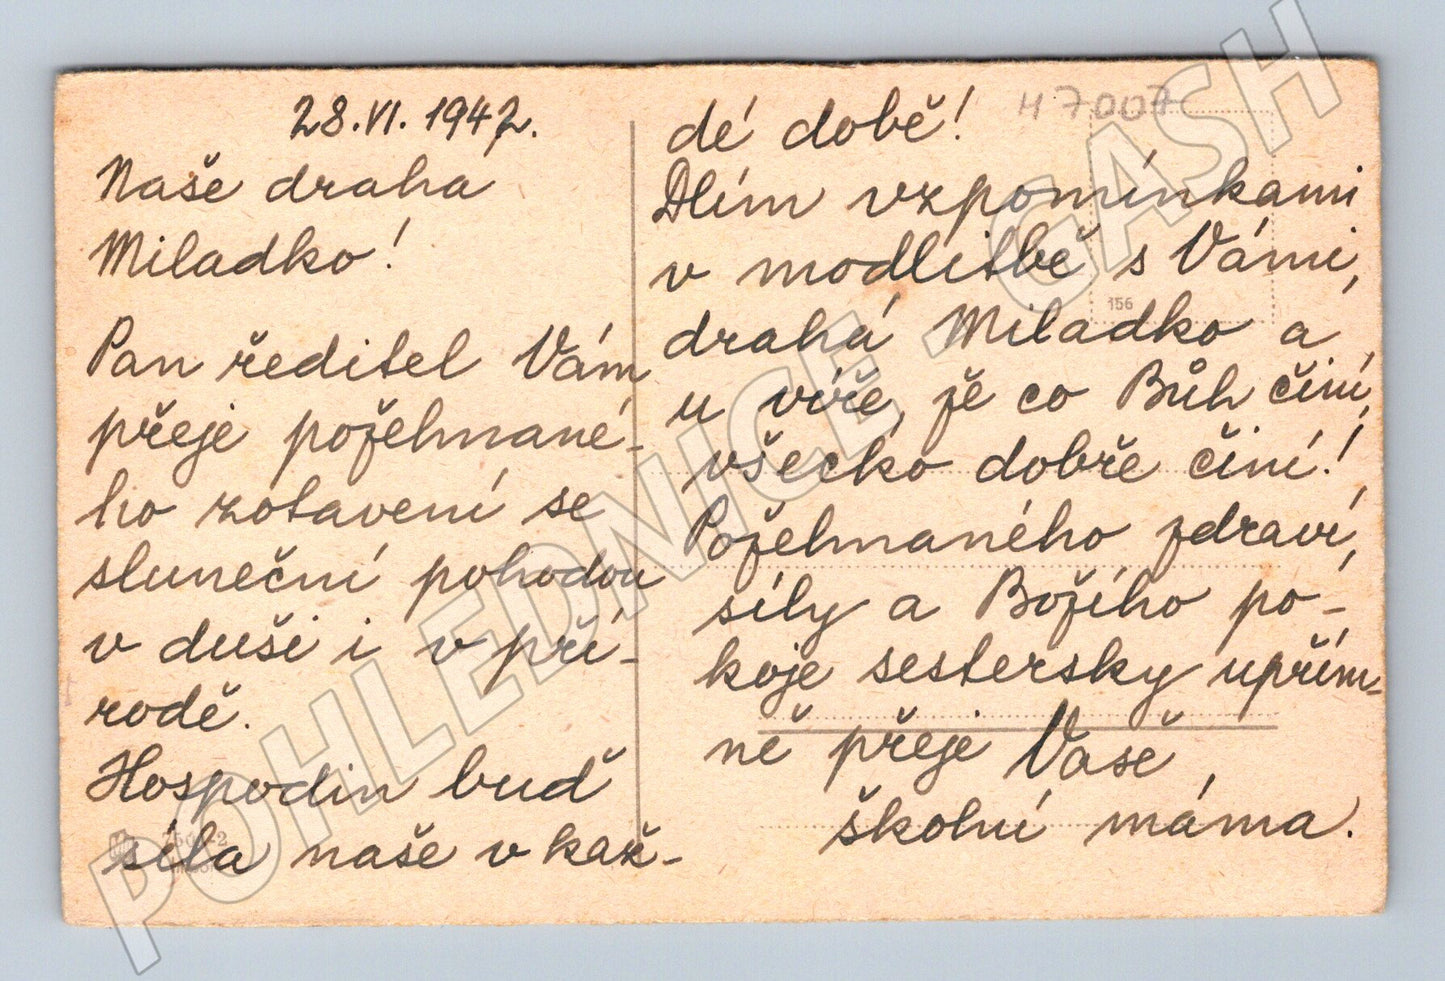 28.VI.1942.
Naše draha
Miladko!
Pan ředitel Vám
přeje požehnané-
ho zotavení se
sluneční pohodou
v duši i v pří-
rodě.
Hospodin buď
síla naše v kaž-
47007
dé době!
Dlím vzpomínkami
v modlitbě s Vámi,
156
drahá Miladko a
u víře, že co Bůh činí,
všecko dobře činí!
Požehnaného zdraví,
síly a Božího po-
koje sestersky upřím-
ně přeje Vaše,
školní máma.
POHLEDNICE - GASH